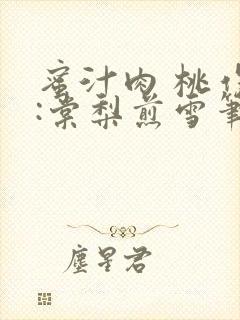 蜜汁肉桃作
:棠梨煎雪筆
塵星君